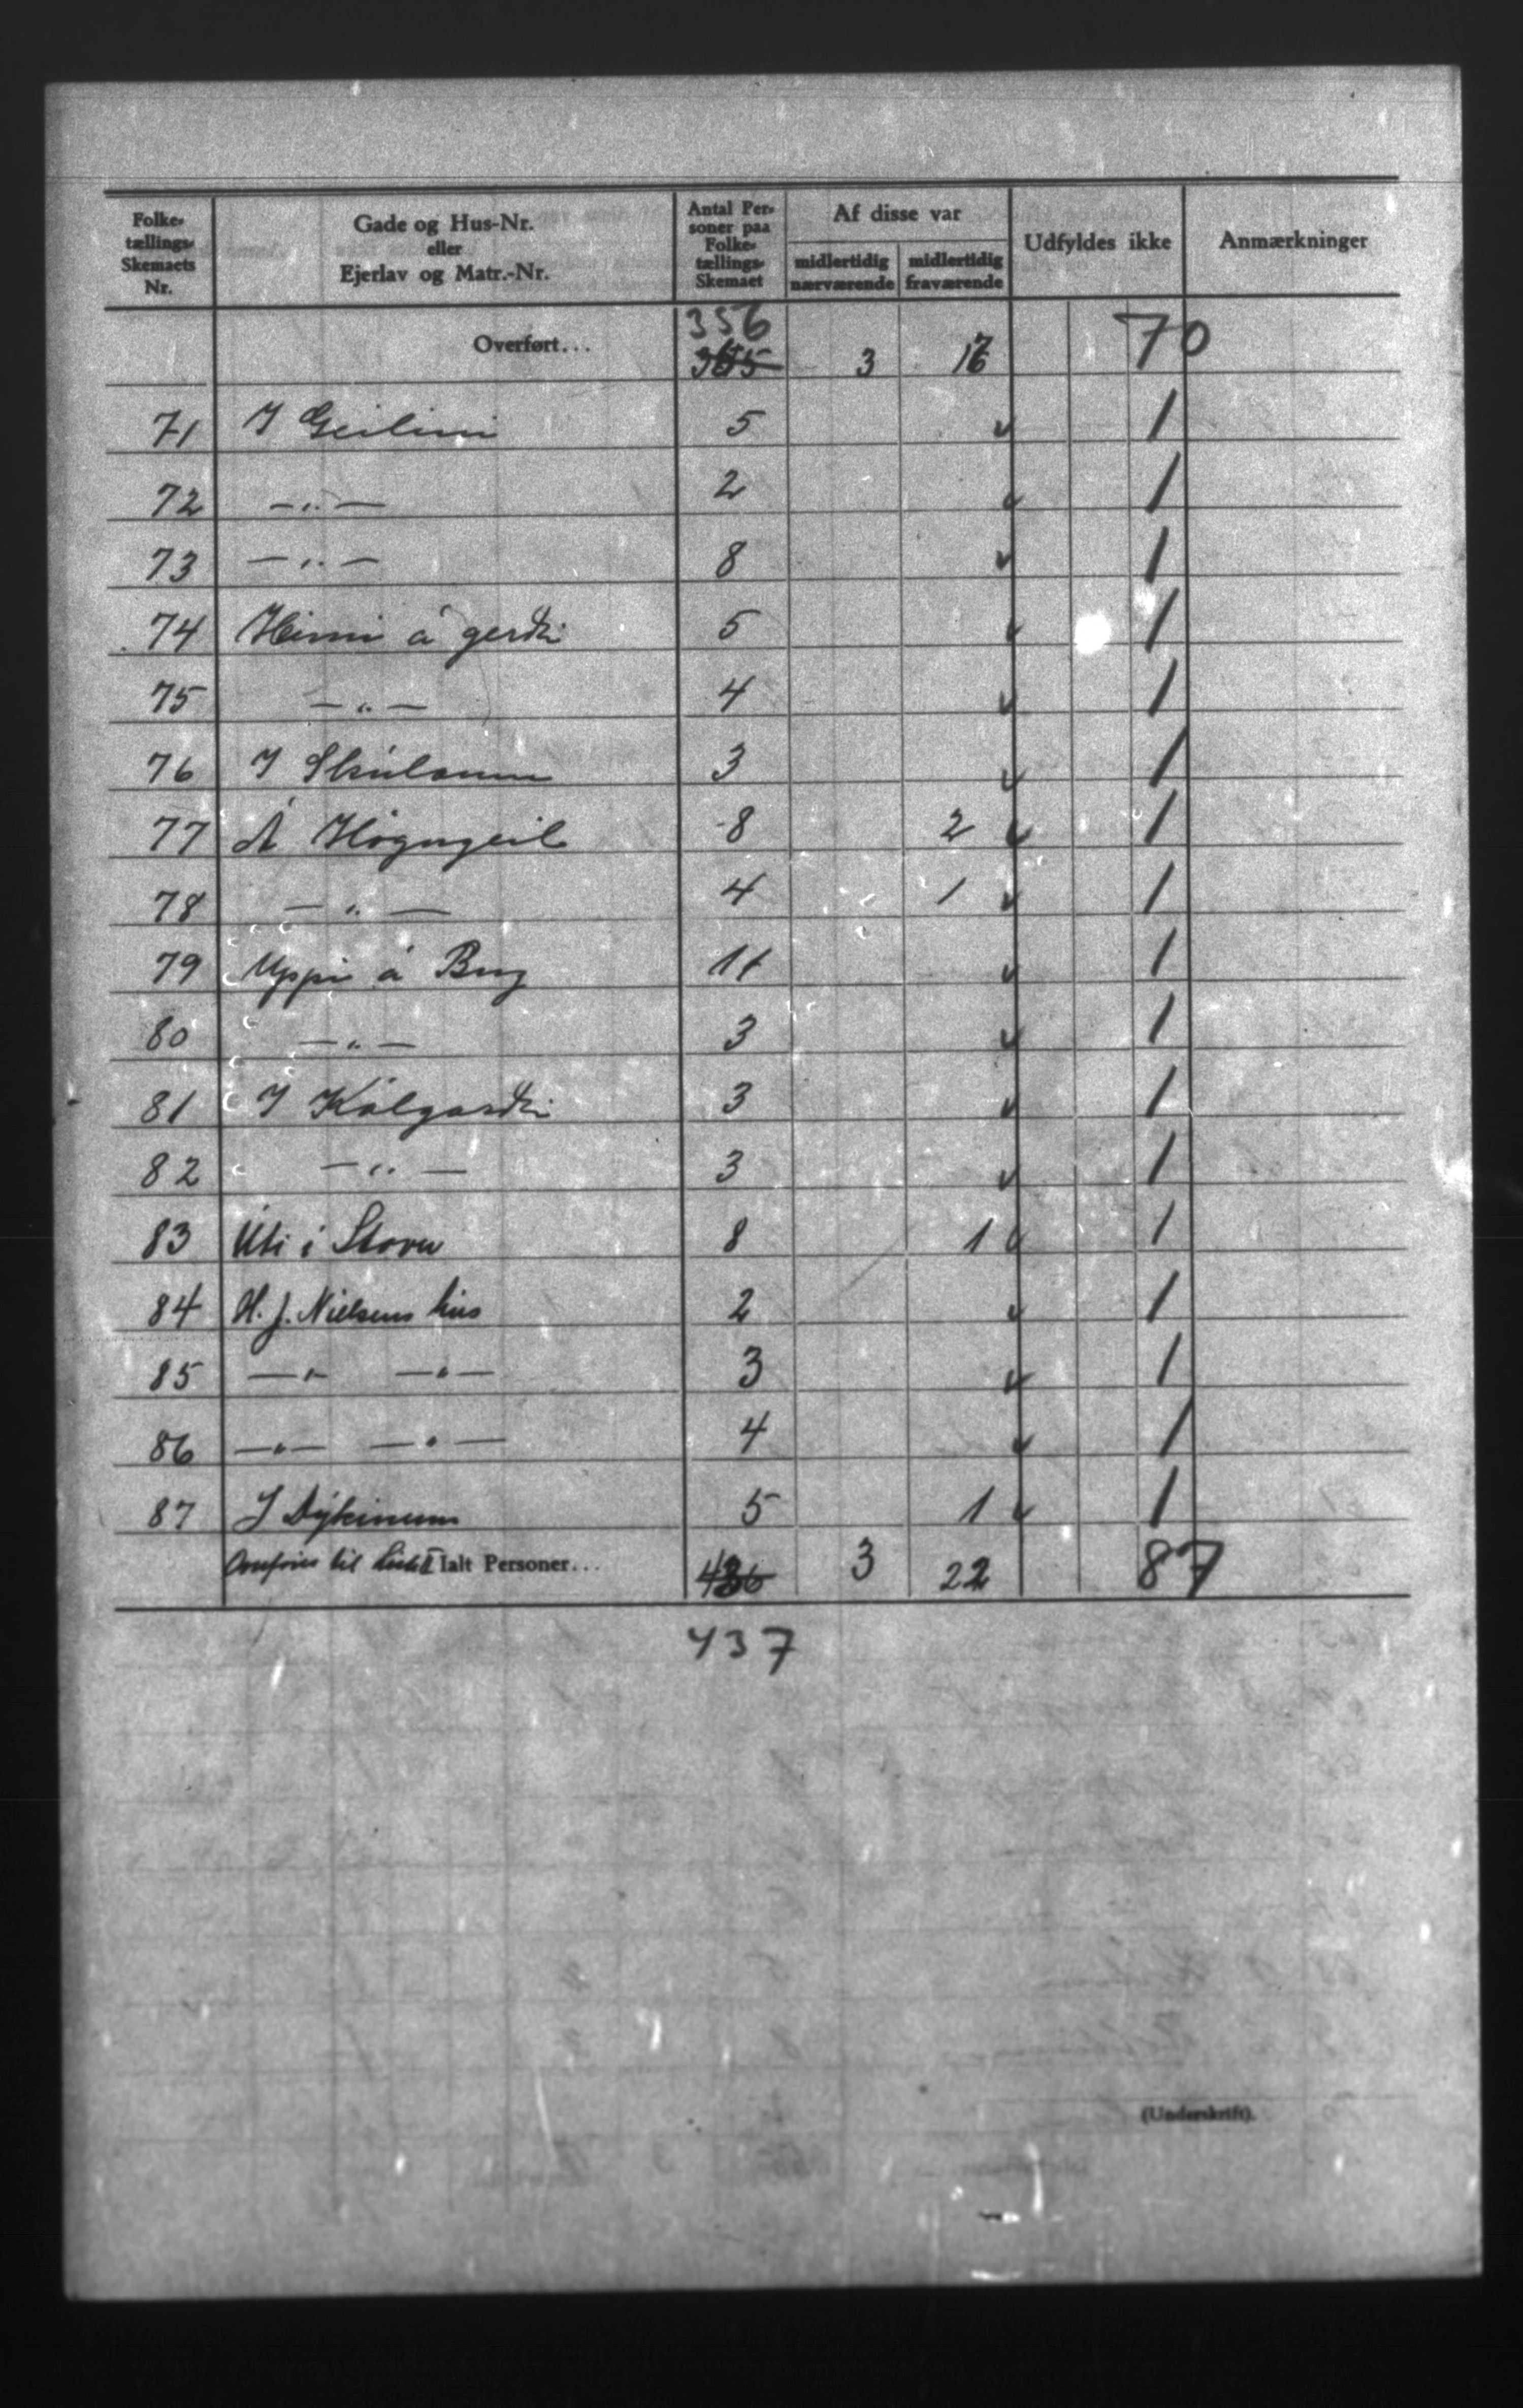 Folketællings-Skemaets Nr. | Gade og Hus-Nr. eller Ejerlav og Matr.-Nr. | Antal Personer paa Folketællings-Skemaet | Af disse var midlertidig nærværende | midlertidig fraværende | Udfyldes ikke | Anmærkninger
356
Overført... 3 17 70
71 I Geilini 5 1
72 —〃— 2 1
73 —〃— 8 1
74 Heimi á gerði 5 1
75 —〃— 4 1
76 I Skúlanum 3 1
77 Á Høgugeil 8 2 1
78 —〃— 4 1 1
79 Uppi á Brug 11 1
80 —〃— 3 1
81 I Kálgarði 3 1
82 —〃— 3 1
83 Úti i Stovu 8 1 1
84 H. J. Nielsens hús 2 1
85 —〃— —〃— 3 1
86 —〃— —〃— 4 1
87 I Dýkinum 5 1 1
Overføres til Liste II Ialt Personer... 436 3 22 87
437
(Underskrift).